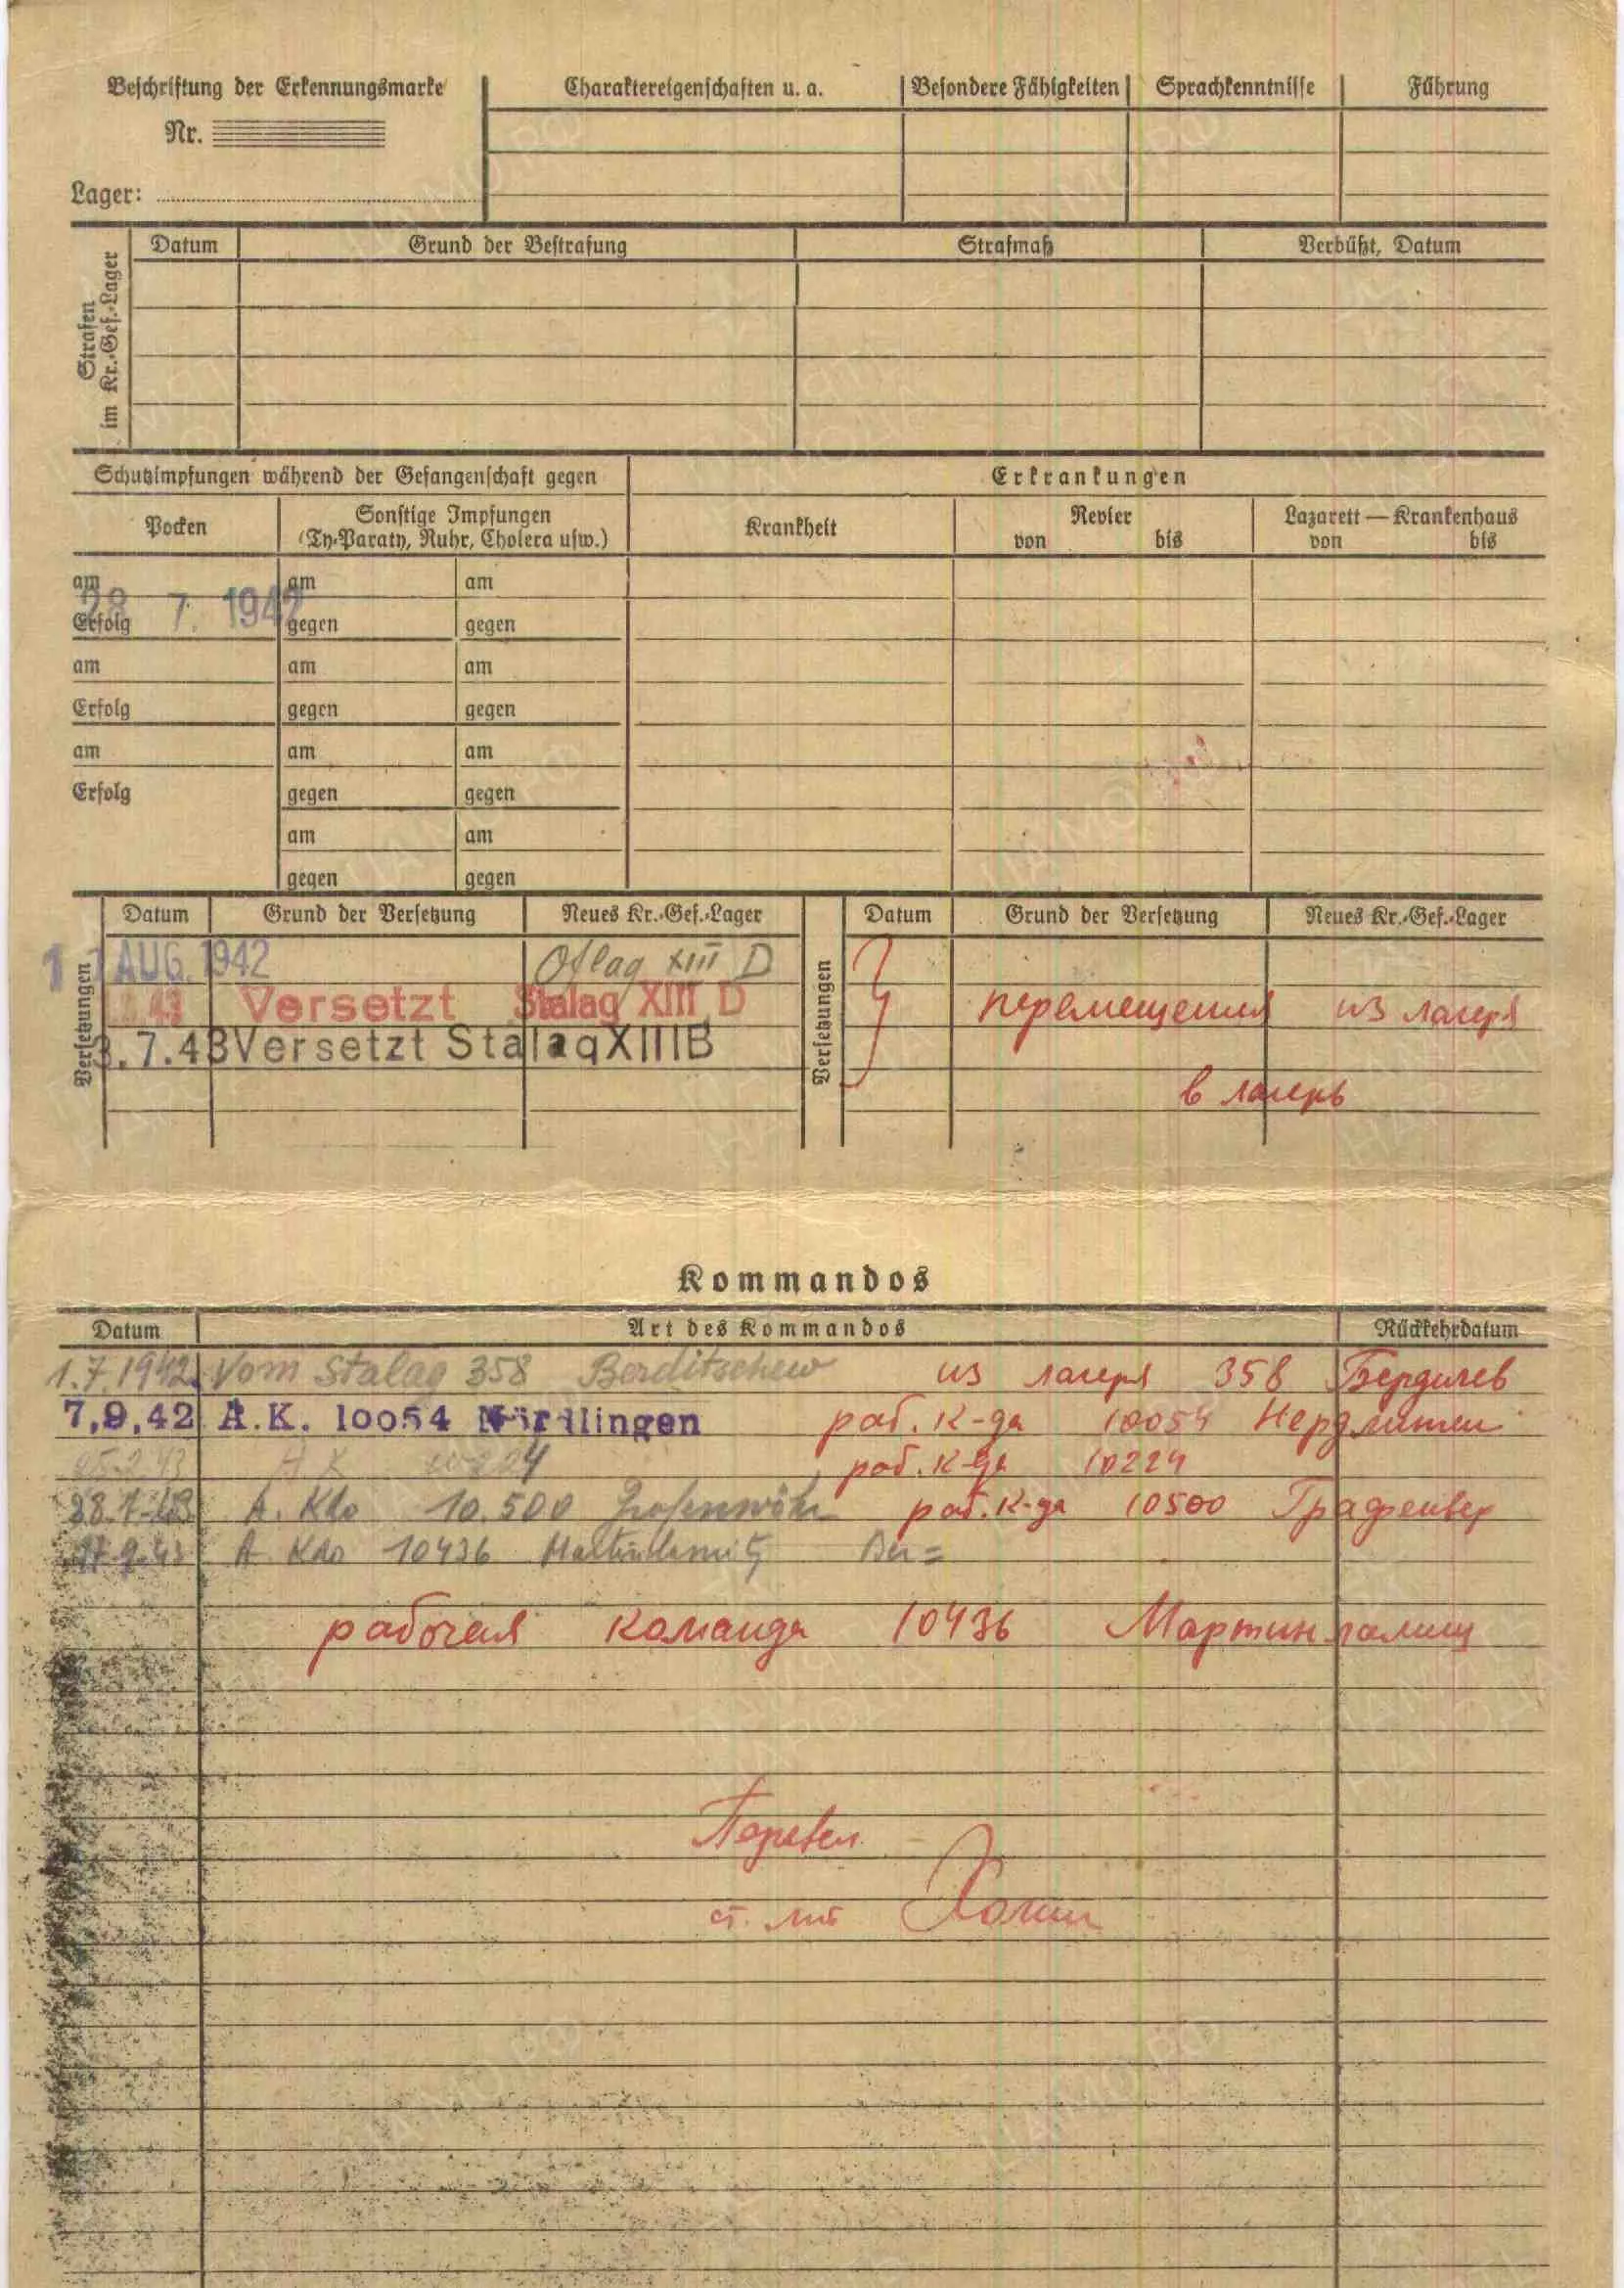 Beschriftung der Erkennungsmarke
Nr.
Lager:
Charaktereigenschaften u. a. Besondere Fähigkeiten Sprachkenntnisse Führung
Strafen im Kr.-Gef.-Lager
Datum Grund der Bestrafung Strafmaß Verbüßt, Datum
Schutzimpfungen während der Gefangenschaft gegen Erkrankungen
Pocken Sonstige Impfungen (Ty-Paraty, Ruhr, Cholera usw.) Krankheit Revier von bis Lazarett — Krankenhaus von bis
am am am
28 7. 1942
Erfolg gegen gegen
am am am
Erfolg gegen gegen
am am am
Erfolg gegen gegen
am am
gegen gegen
Versetzungen Datum Grund der Versetzung Neues Kr.-Gef.-Lager Versetzungen Datum Grund der Versetzung Neues Kr.-Gef.-Lager
AUG. 1942 Oflag XIII D
43 Versetzt Stalag XIII D перемещения из лагеря
3.7.43 Versetzt Stalag XIIIB
в лагерь
Kommandos
Datum Art des Kommandos Rückkehrdatum
1.7.1942 Vom Stalag 358 Berditschew из лагеря 358 Бердичев
7,9,42 A.K. 10054 Nördlingen раб. к-да 10054 Нердлинген
A K 10224 раб. к-да 10224
28.7.43 A. Kdo 10.500 раб. к-да 10500 Графенвер
17.9.43 A Kdo 10436
рабочая команда 10436 Мартинламиц
Перевел
ст. л-т